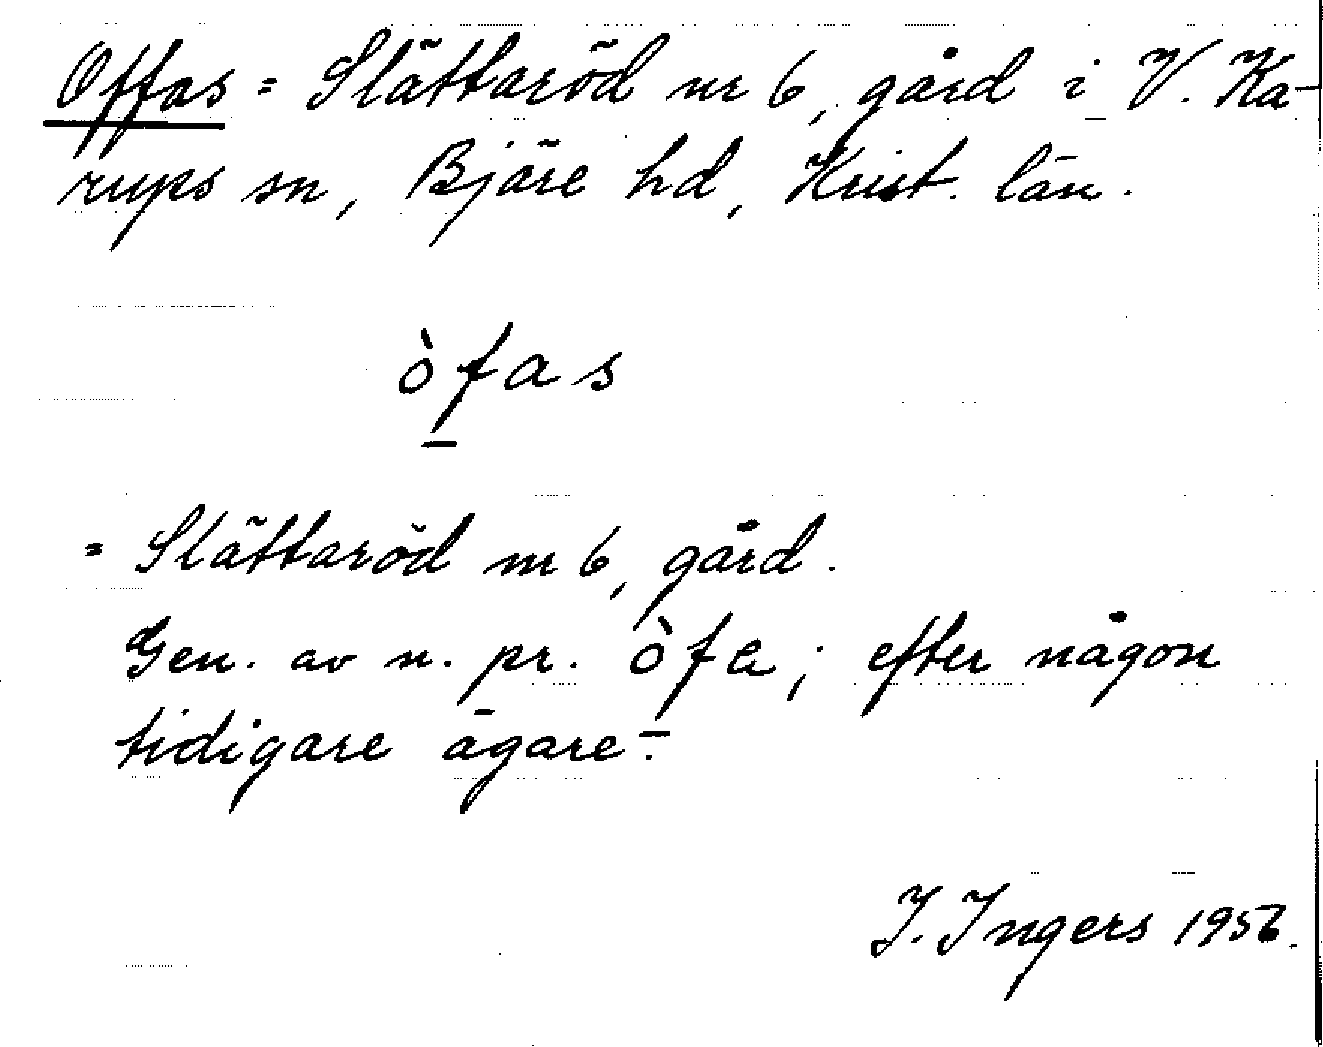 Offas = Slättaröd nr 6, gård i V. Ka-
rups sn, Bjäre hd, Krist. län.
òf̱as
= Slättaröd nr 6, gård.
Gen. av n. pr. òf̱a; efter någon
tidigare ägare.
I. Ingers